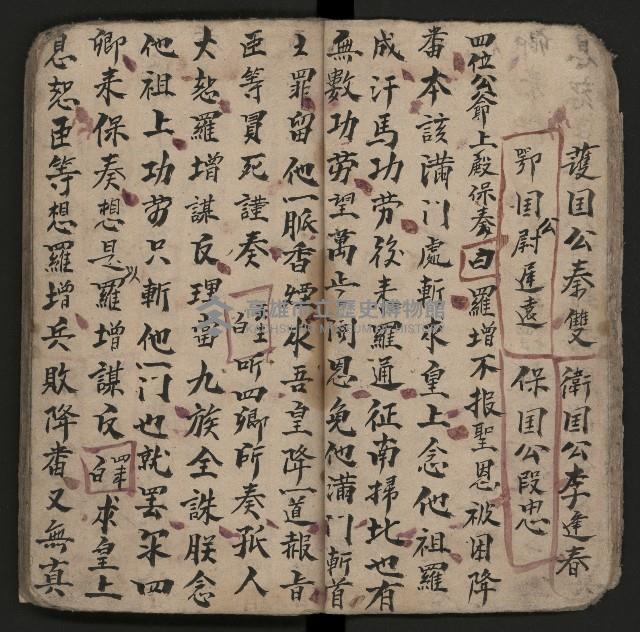 護国公秦雙　衛国公李逢春
鄂国公尉遲遠　保国公段忠
四位公爺上殿保奏白羅增不报聖恩被困降
番本該満门處斬求皇上念他祖羅
成汗馬功劳後來羅通征南掃北也有
無数功劳望萬歩開恩免他满门斬首
之罪留他一脈香煙求吾皇降一道赧旨
臣等冒死謹奏　白王听四卿所奏孤人
大怒羅增謀反理當九族全誅朕念
他祖上功劳只斬他一门也就罢罪四
卿来保奏想是以羅增謀反　四本白求皇上
息恕臣等想羅增兵敗降番又無真
高雄市立歷史博物館
KAOHSIUNG MUSEUM OF HISTORY